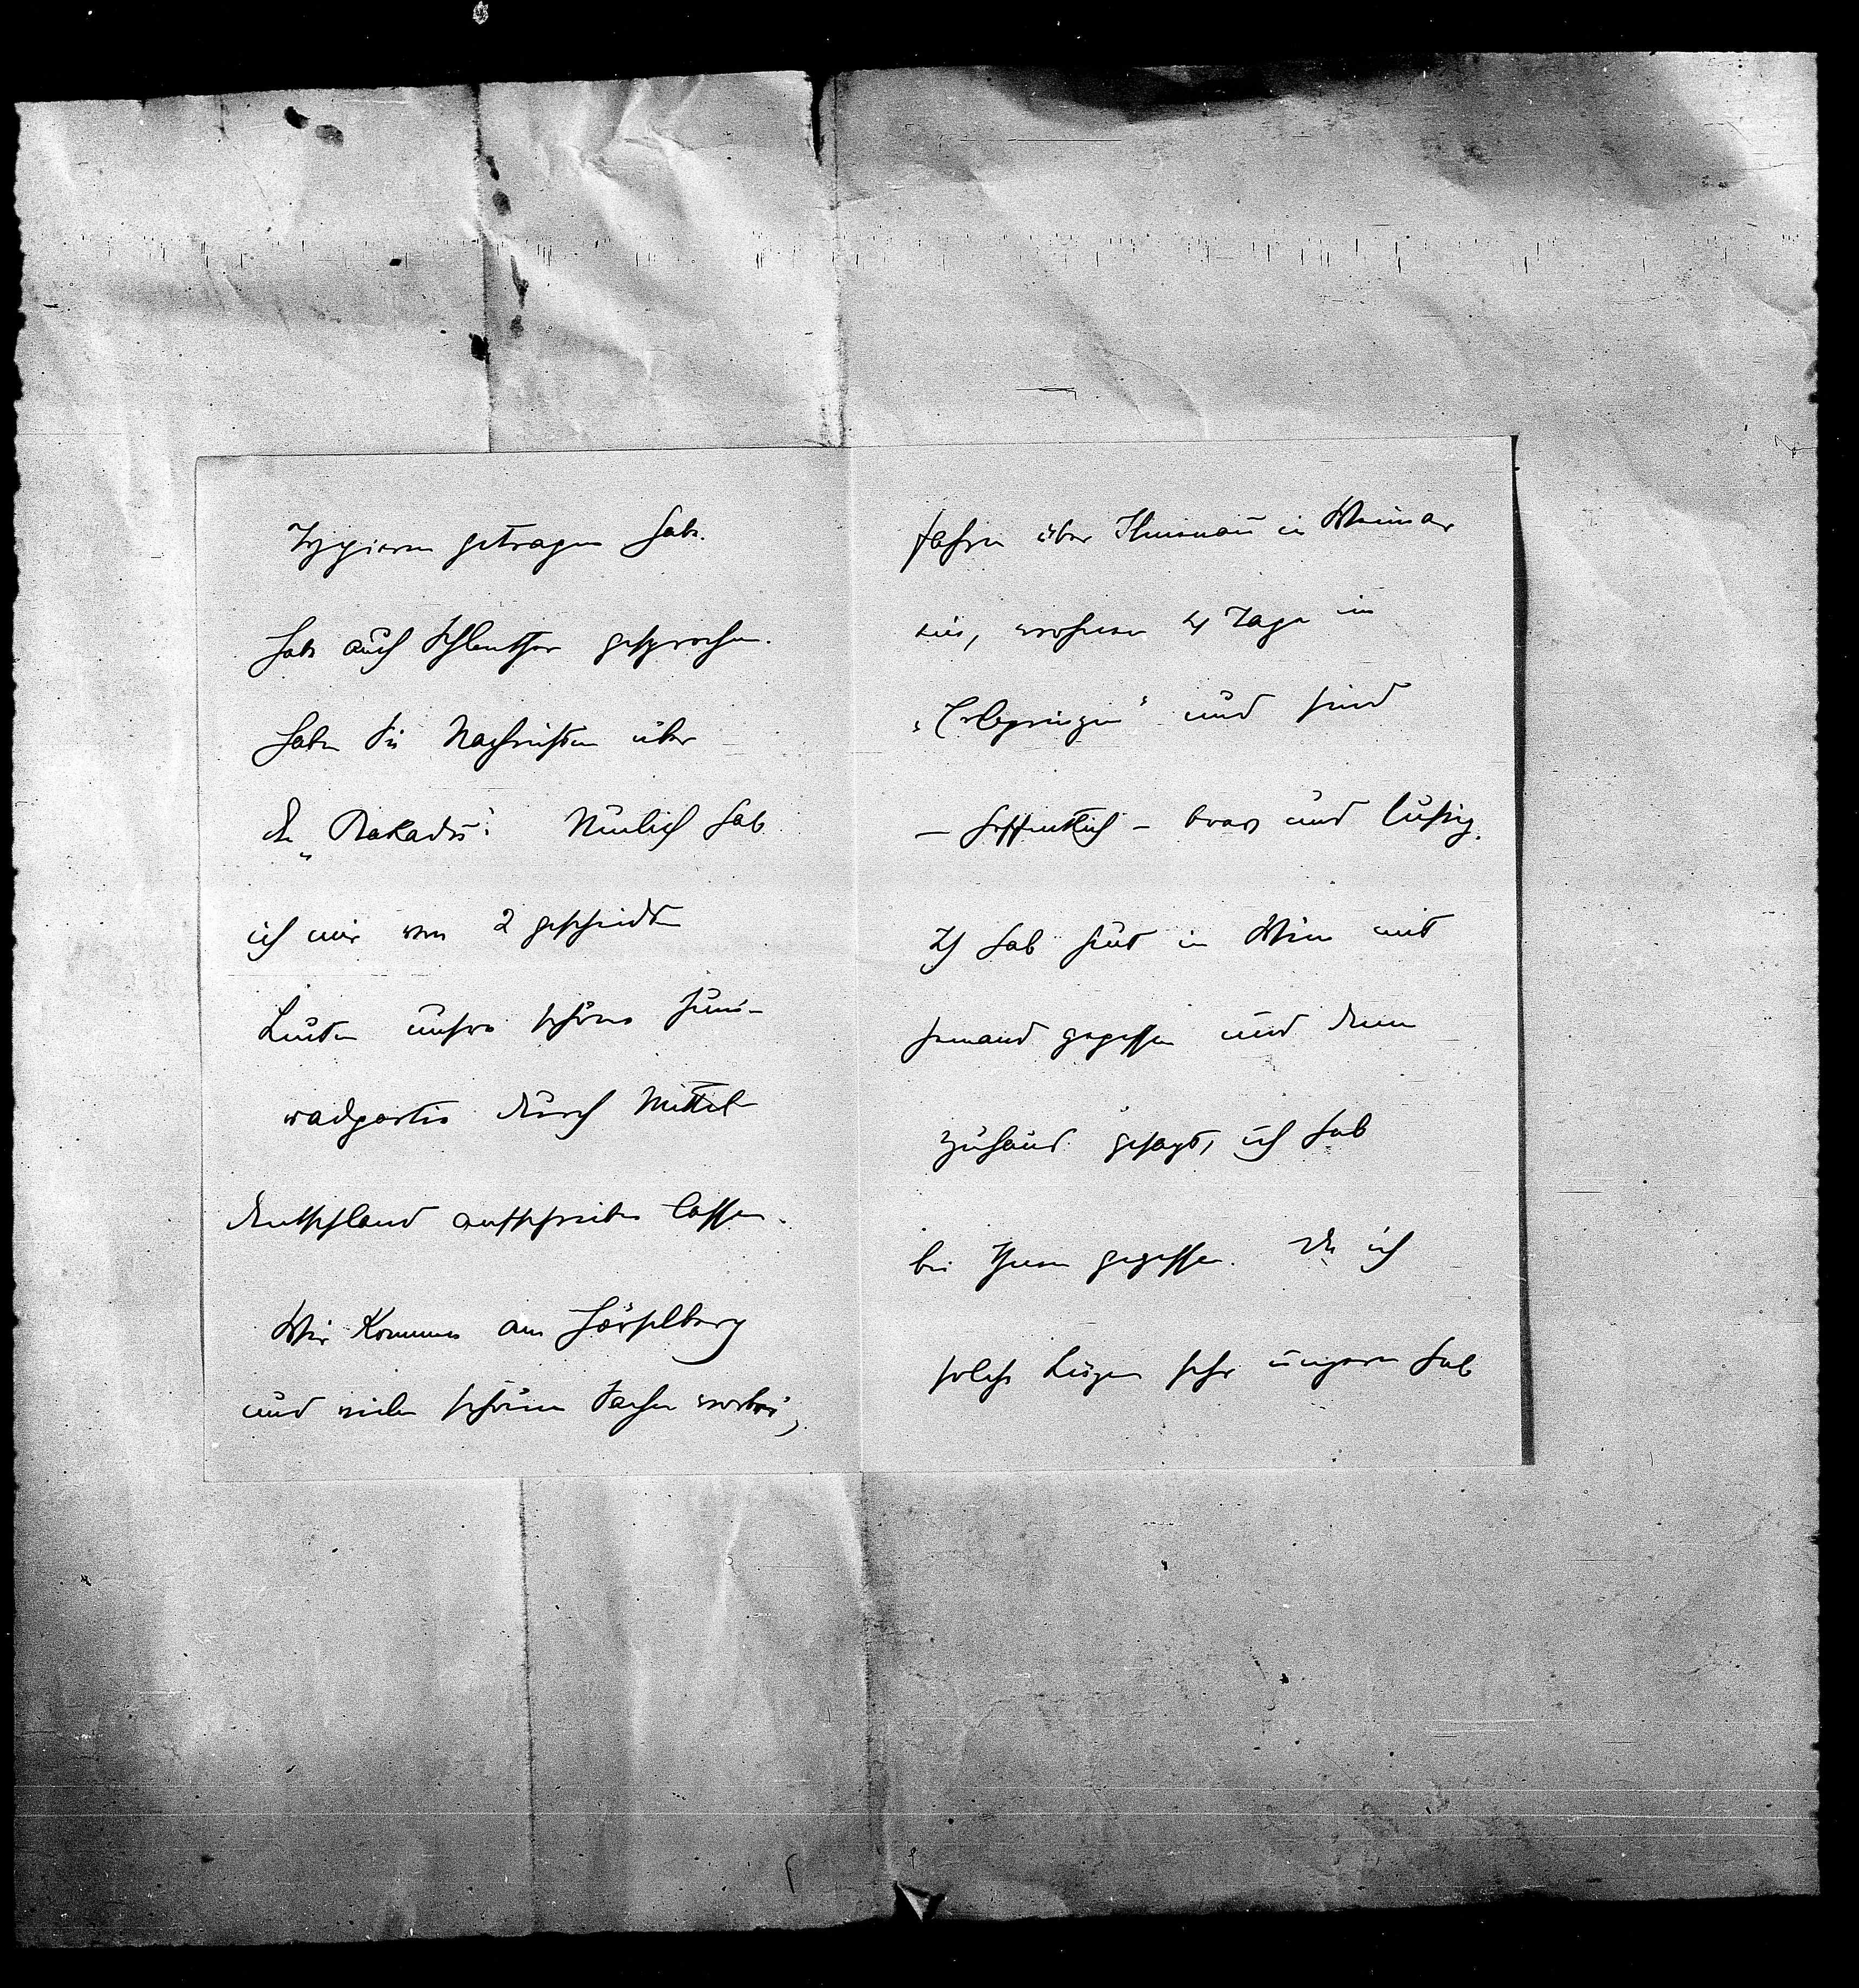 Typieren getragen habe.
Habe auch Schlenther gesprochen.
Haben Sie Nachrichten über
die „Rakadu“? Neulich hab
ich mir von 2 gescheidten
Leuten unsere schöne Juni-
radpartie durch Mittel-
deutschland aufschreiben lassen.
Wir kommen am Hörselberg
und vielen schönen Sachen vorbei,
fahren über Ilmenau in Weimar
ein, wohnen 4 Tage im
„Erbprinzen“ und sind
– hoffentlich – brav und lustig.
Ich hab heut in Wien mit
jemand gegessen und dann
zuhaus gesagt, ich hab
bei Ihnen gegessen. Da ich
solche Lügen sehr ungern hab